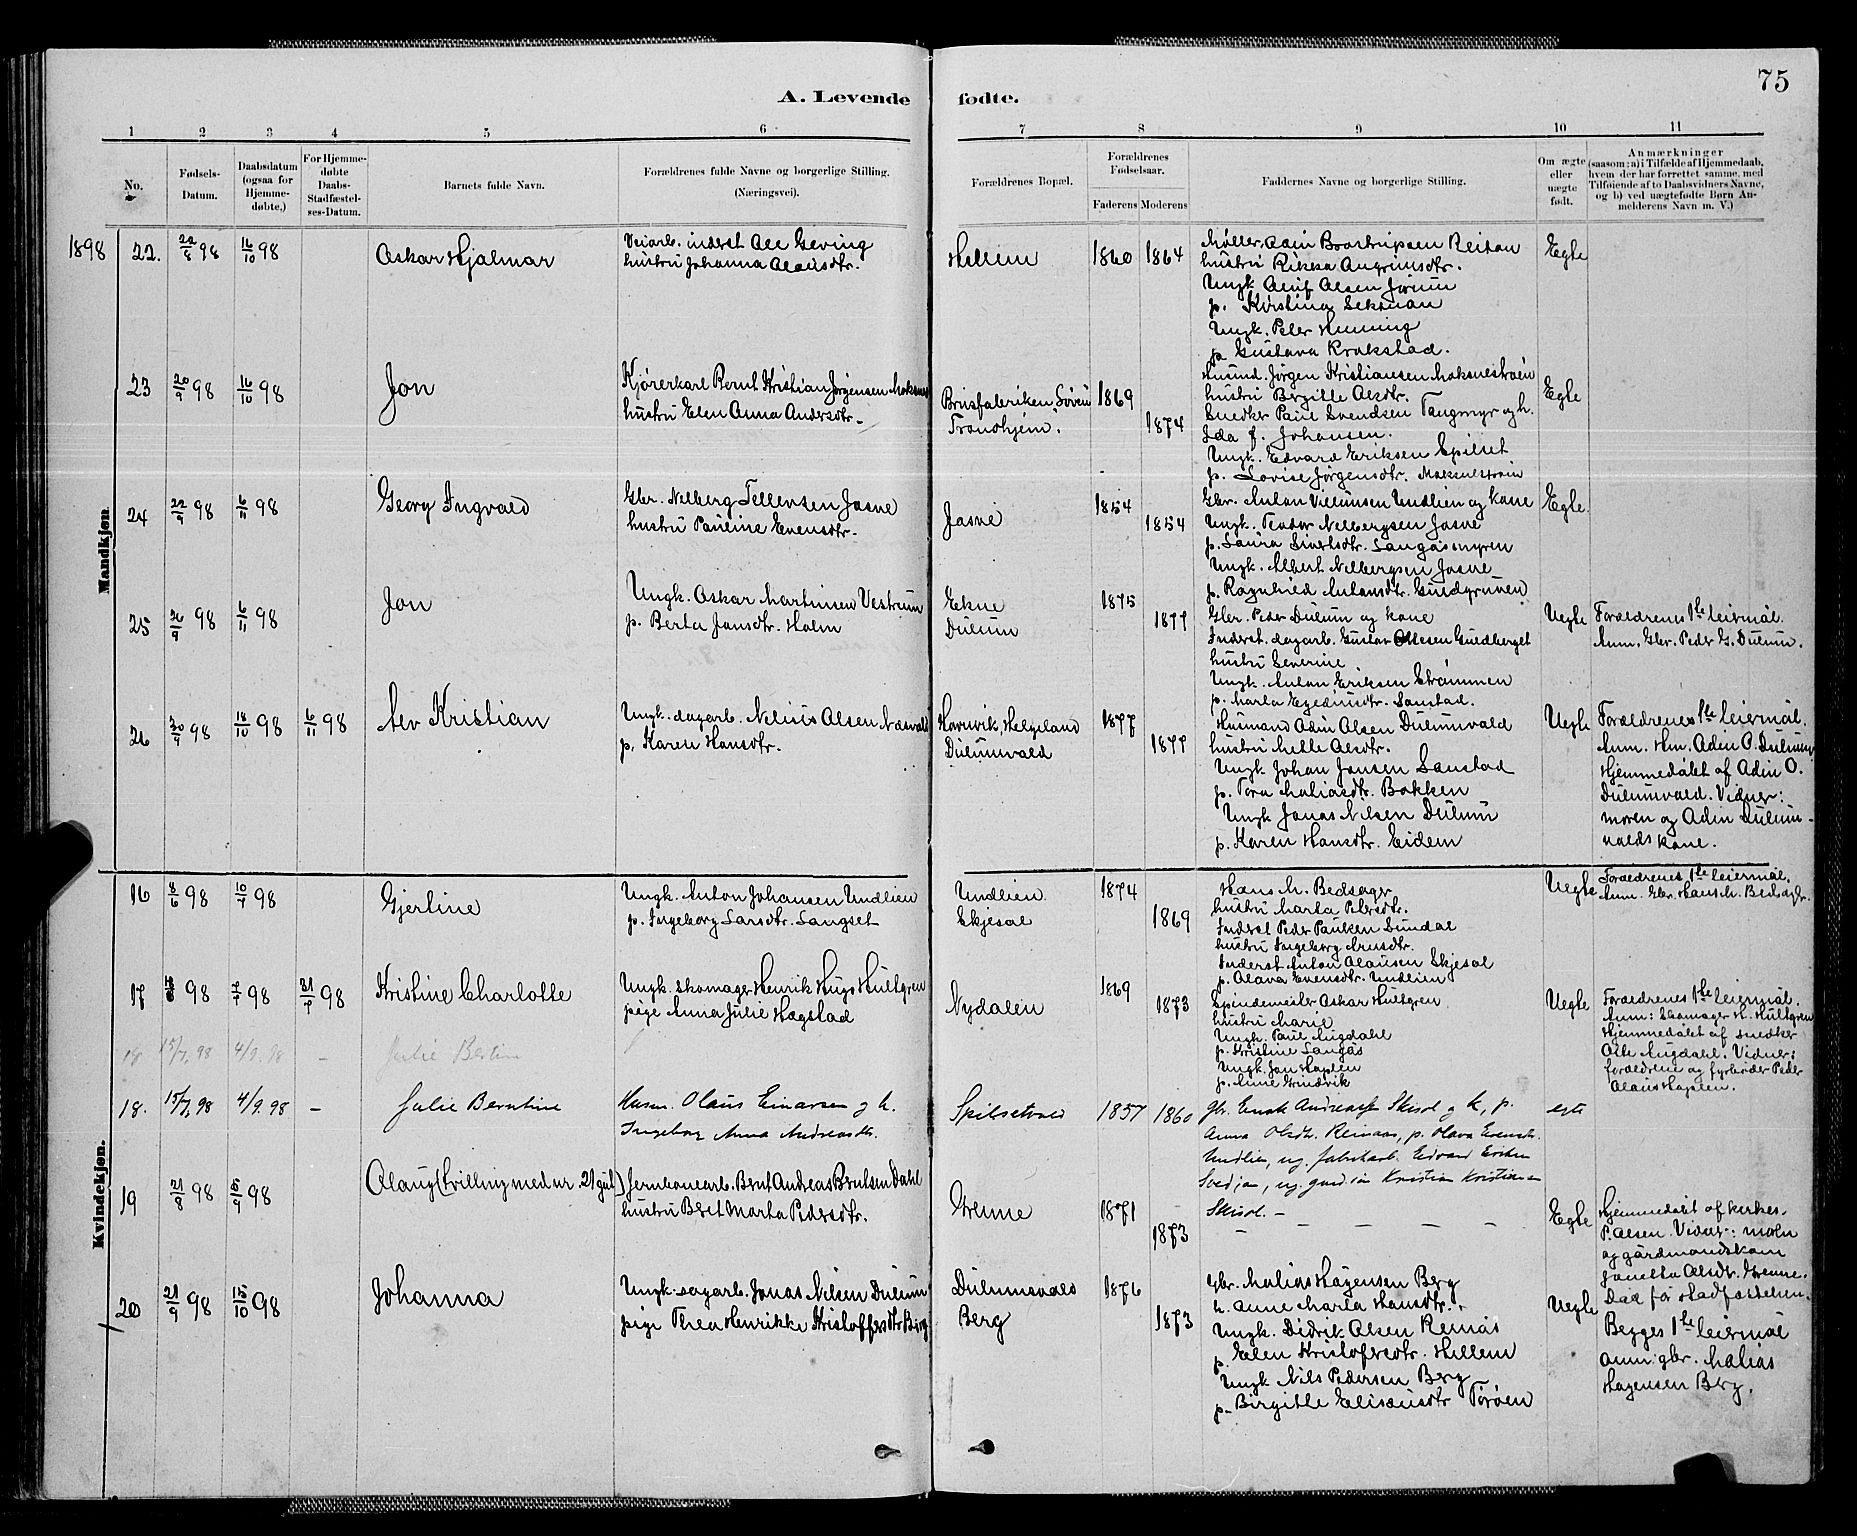 75
A. Levende fødte.
1 2 3 4 5 6 7 8 9 10 11
No.
Fødsels-
Datum.
Daabsdatum
(ogsaa for
Hjemme-
døbte,)
For Hjemme-
døbte
Daabs-
Stadfæstel-
ses-Datum.
Barnets fulde Navn.
Forældrenes fulde Navne og borgerlige Stilling.
(Næringsvei).
Forældrenes Bopæl.
Forældrenes
Fødselsaar.
Faderens Moderens
Faddernes Navne og borgerlige Stilling.
Om ægte
eller
uægte
født.
Anmærkninger
(saasom: a) i Tilfælde af Hjemmedaab,
hvem der har forrettet samme, med
Tilføiende af to Daabsvidners Navne,
og b) ved uægtefødte Børn An-
melderens Navn m. V.)
1898
Mandkjøn
22. 98 16/10 98
Oskar Hjalmar
Veiarb. inderst Ole Geving
hustru Johanna Olausdtr.
Hellem
1860 1864
hustru Rikka
Ungk. Oluf Olsen Jørum
p. Kirstina Leksman
Ungk. Peter Henning
p. Gustava Krokstad.
Egte
23 20/9 98 16/10 98
Jon
Kjørerkarl Bernt Kristian Jørgensen Moksnes
hustru Elen Anna Andersdtr.
Brusfabriken
Trondhjem.
1869 1874
Husmd. Jørgen Kristiansen Moksnestrøen
hustru Bergitte Olsdtr.
Snedker Paul Svendsen Tangmyr og h.
Ida f. Johansen.
Ungk. Edvard Eriksen Spilset
p. Lovise Jørgensdtr. Moksnestrøen
Egte
24 22/9 98 6/11 98
Georg Ingvald
Gbr. Nelberg Tellevsen Jøsne
hustru Pauline Evensdtr.
Jøsne
1854 1854
Gbr. Anton Undlien og kone
Ungk. Teodor Nelbergsen Jøsne
p. Laura Sivertsdtr. Langåsmyren
Ungk. Albert Nelbergsen Jøsne
p. Ragnhild Antonsdtr.
Egte.
25 26/9 98 6/11 98
Jon
Ungk. Oskar Martinsen Vestrum
p. Berta Jonsdtr. Holm
Ekne
Dulum
1875 1877
Gbr. Peder Dulum og kone
Inderst. dagarb. Gustav Olsen Guldberget
hustru Severine
Ungk. Anton Eriksen Strømmen
p. Marta Sanstad.
Uegte
Forældrenes 1ste leiermål.
Anm. Gbr. Peder G. Dulum.
26 30/9 98 18/10 98 6/11 98
Kristian
Ungk. dagarb. Nelius Olsen
p. Karen Hansdtr.
Helgeland
Dulumvald
1877 1877
Husmand Adin Olsen Dulumvald
hustru Mette Olsdtr.
Ungk. Johan Jonsen Sanstad
p. Tora Maliasdtr. Bakken
Ungk. Jonas Nilsen Dulum
p. Karen Hansdtr. Eidem
Uegte
Forældrenes 1ste leiermål.
Anm. Hm. Adin O. Dulum
Hjemmedøbt af Adin O.
Dulumvald. Vidner:
moren og Adin Dulum-
valds kone.
Kvindekjøn.
16 8/6 98 10/7 98
Gjertine
Ungk. Anton Johansen Undlien
p. Ingeborg Larsdtr. Langset
Undlien
Skjesol
1874 1869
Hans M. Bedsager
hustru Marta Petersdtr.
Inderst Peder Paulsen Sundal
hustru Ingeborg Arnsdtr.
Inderst Anton Olausen Skjesol
p. Olava Evensdtr. Undlien
Uegte
Forældrenes 1ste leiermål.
Anm. Gbr. Hans M. Bedsager.
17 98 98 98
Kristine Charlotte
Ungk. skomager Henrik Hugo Hultgren
pige Anna Julie Hogstad
Nydalen
1869 1873
Spindemester Oskar Hultgren
hustru Marie
Ungk. Paul Augdahl
p. Kristine Langås
Ungk. Jon Hoplen
p. Anne Grindvik
Uegte
Forældrenes 1ste leiermål.
Anm: Skomager H. Hultgren
Hjemmedøbt af snedker
Ole Augdahl. Vidner:
forældrene og fyrbøder Peder
Olaus Hoplen.
18 15/7 98 4/9. 98 -
Julie Bertin
18. 15/7, 98 4/9. 98 -
Julie Berntine
Husm. Olaus Einarsen og h.
Ingeborg Anna Andreasdtr.
Spilsetvald
1857 1860
gbr. Enok Andreasse Skisol og k, p.
Anna Olsdtr. Reinaas, p. Olava Evensdtr.
Undlien, ug. fabrikarb. Edvard
ug. Kristian Kristiansen
Skisol.
egte
19 21/8 98 98
Olaug (tvilling med nr. 21 gut)
Jernbanearb. Bernt Andreas Berntsen Dahl
hustru Beret Marta Pedersdtr.
Grenne
1871 1873
- - - - -
Egte
Hjemmedøbt af kirkes.
P. Olsen. Vidner: moren
og gårdmandskone
Jonetta Olsdtr. Grenne.
Død før stadfæstelsen.
20 21/9 98 15/10 98
Johanna
Ungk. dagarb. Jonas Nilsen Dulum
pige Thea Henrikke Kristoffersdtr Berg
Dulumsvald
Berg
1876 1873
gbr. Malias Hågensen Berg
h. Anne Marta Hansdtr.
Ungk. Didrik Olsen Reinås
p. Elen Kristofersdtr. Hellem
Ungk. Nils Pedersen Berg
p. Birgitte Eliseusdtr Tørøen
Uegte
Begges 1ste leiermål
anm: gbr. Malias
Hagensen Berg.